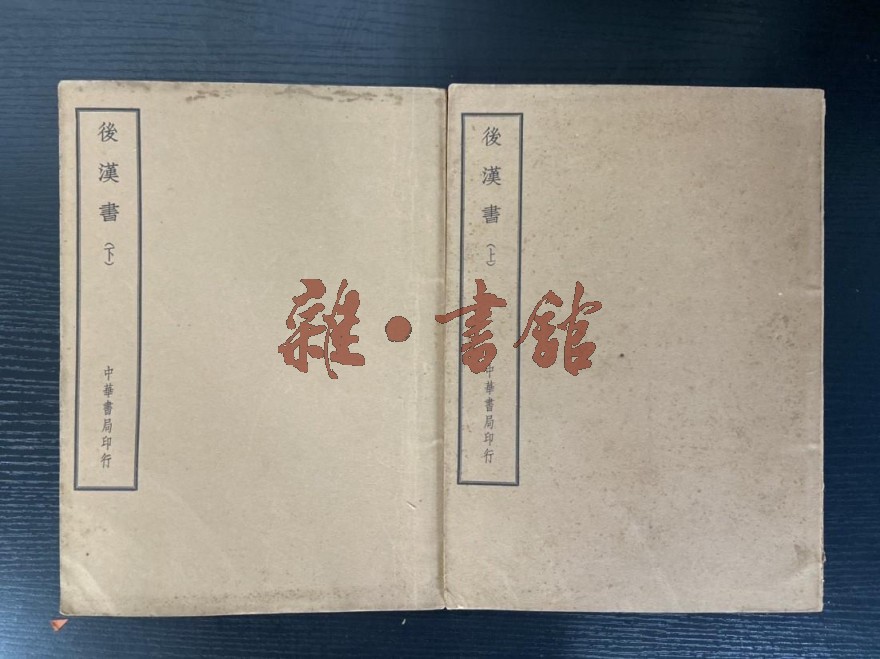 後漢書(上)
中華書局印行
後漢書(下)
中華書局印行
雜·書館